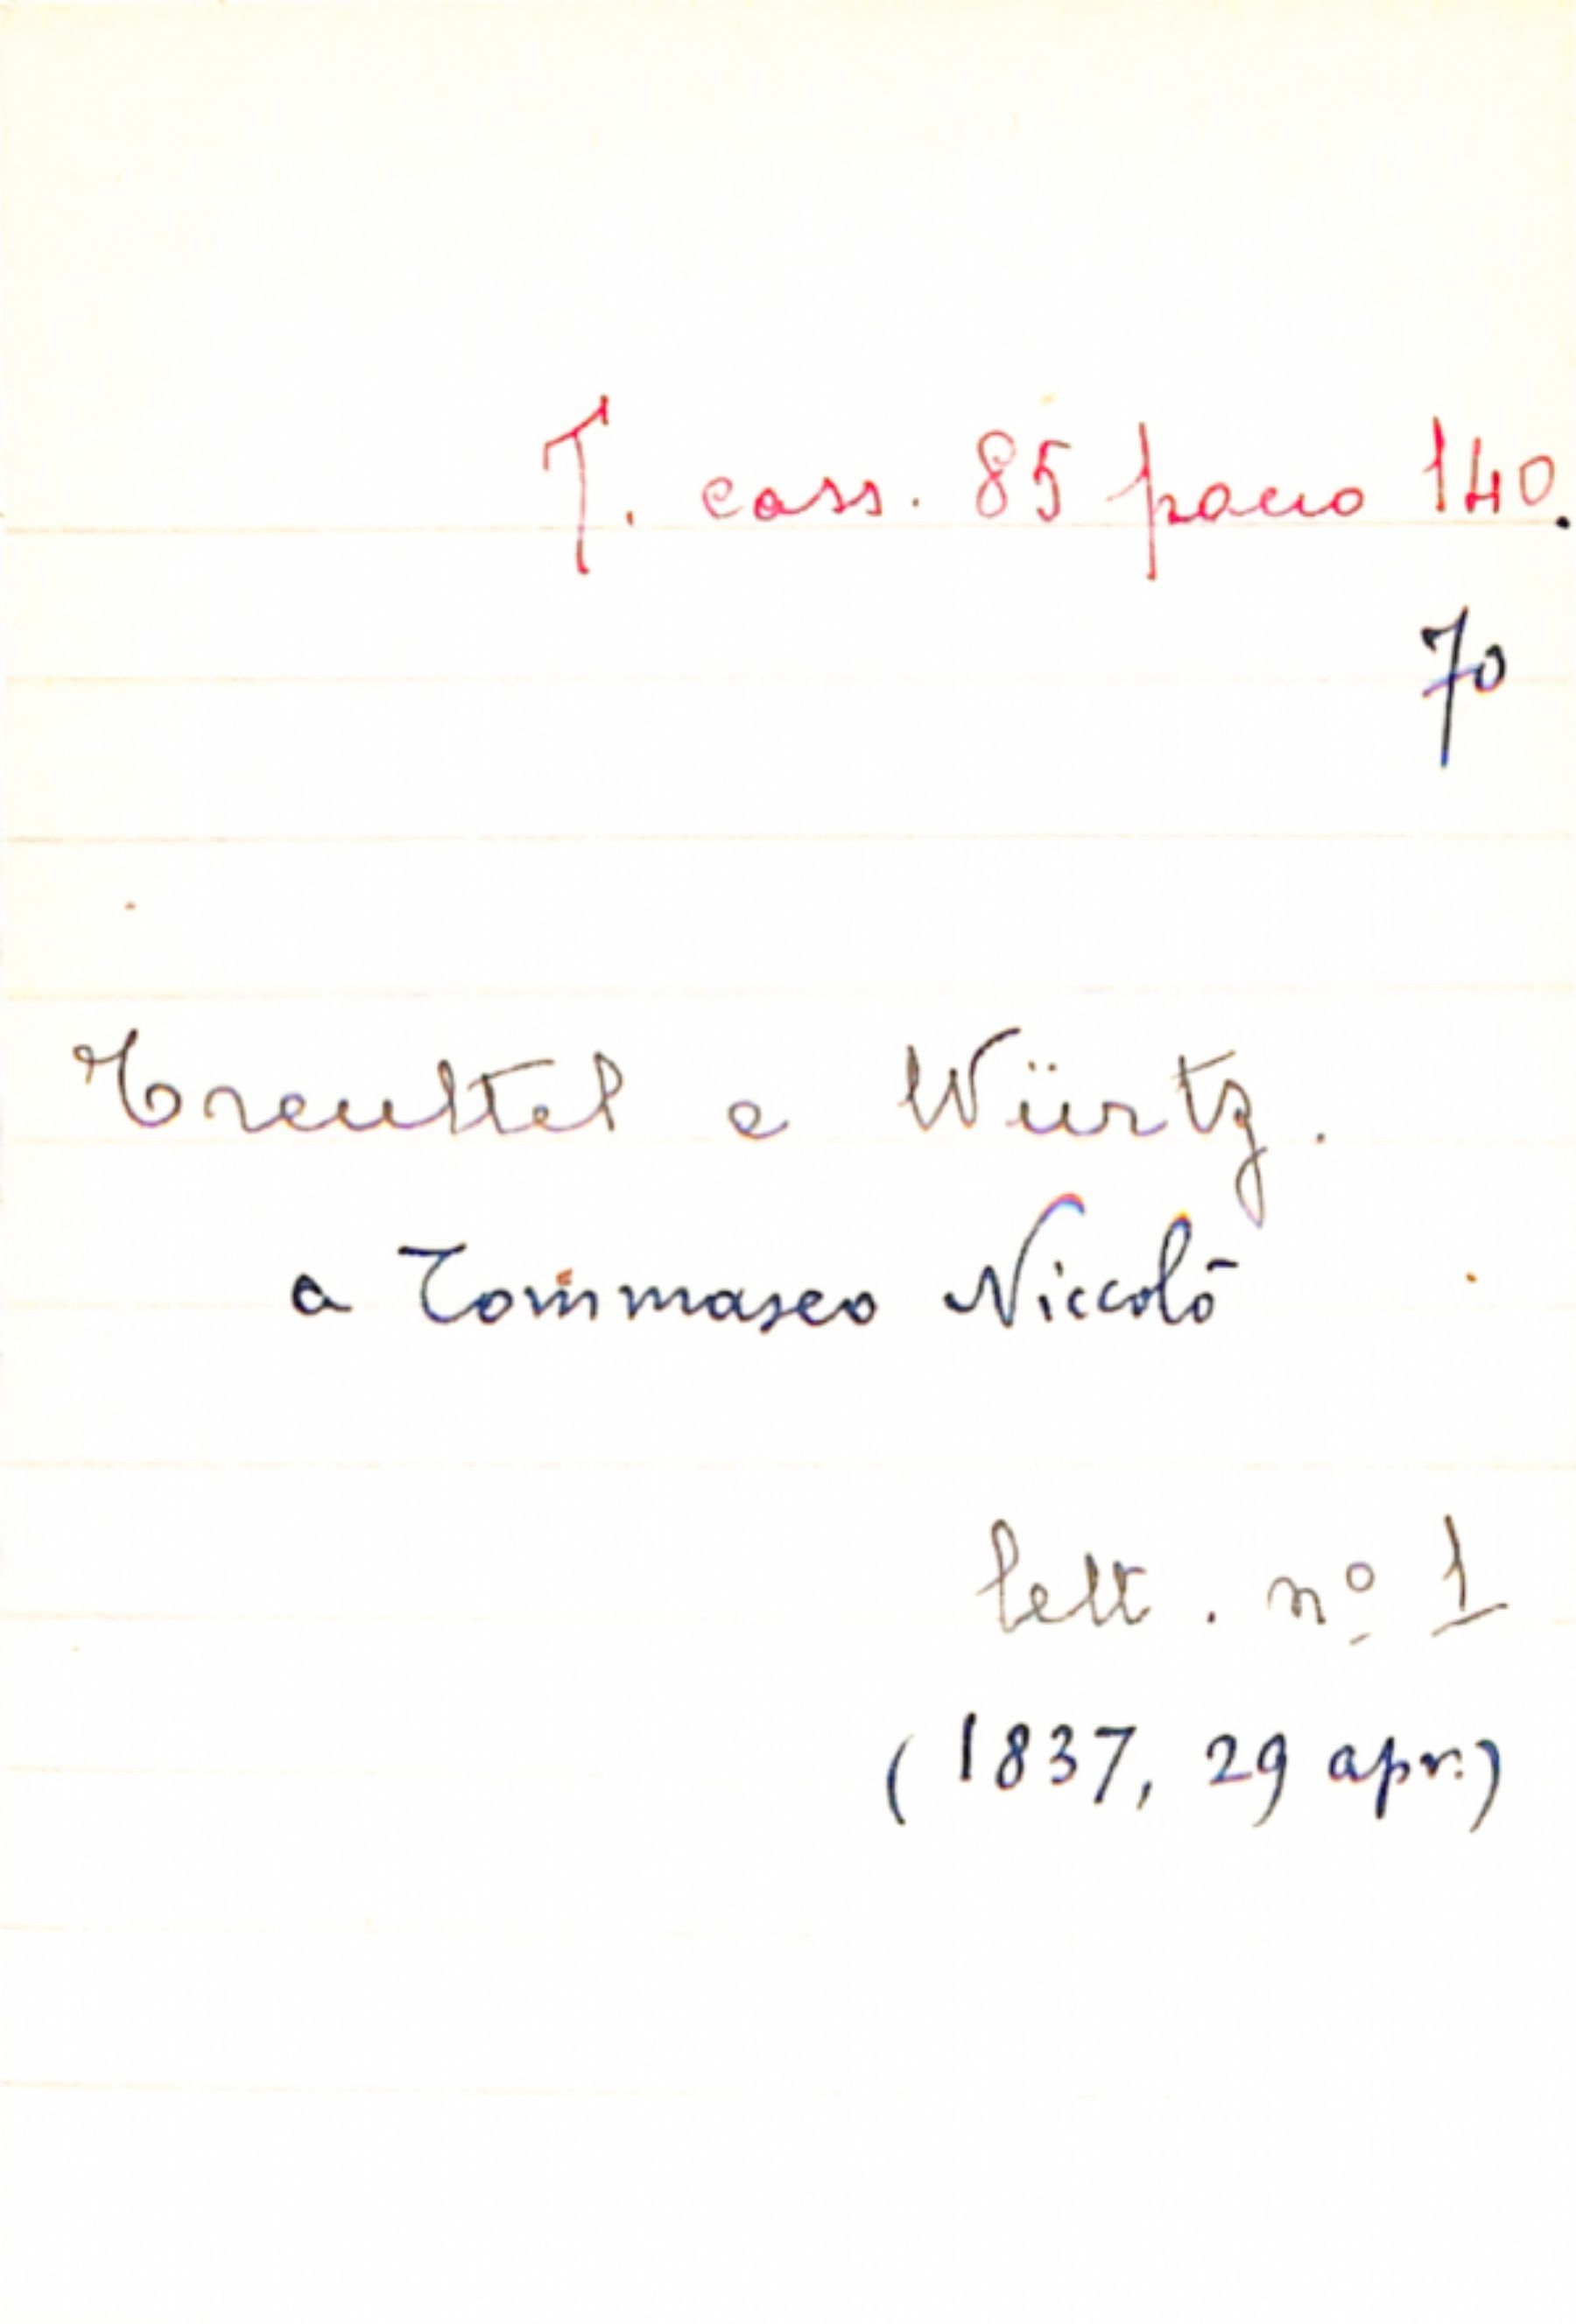 T. cass. 85 pacco 140.
70
Treuttel e Würtz.
a Tommaseo Niccolò
lett. nº 1
(1837, 29 apr.)